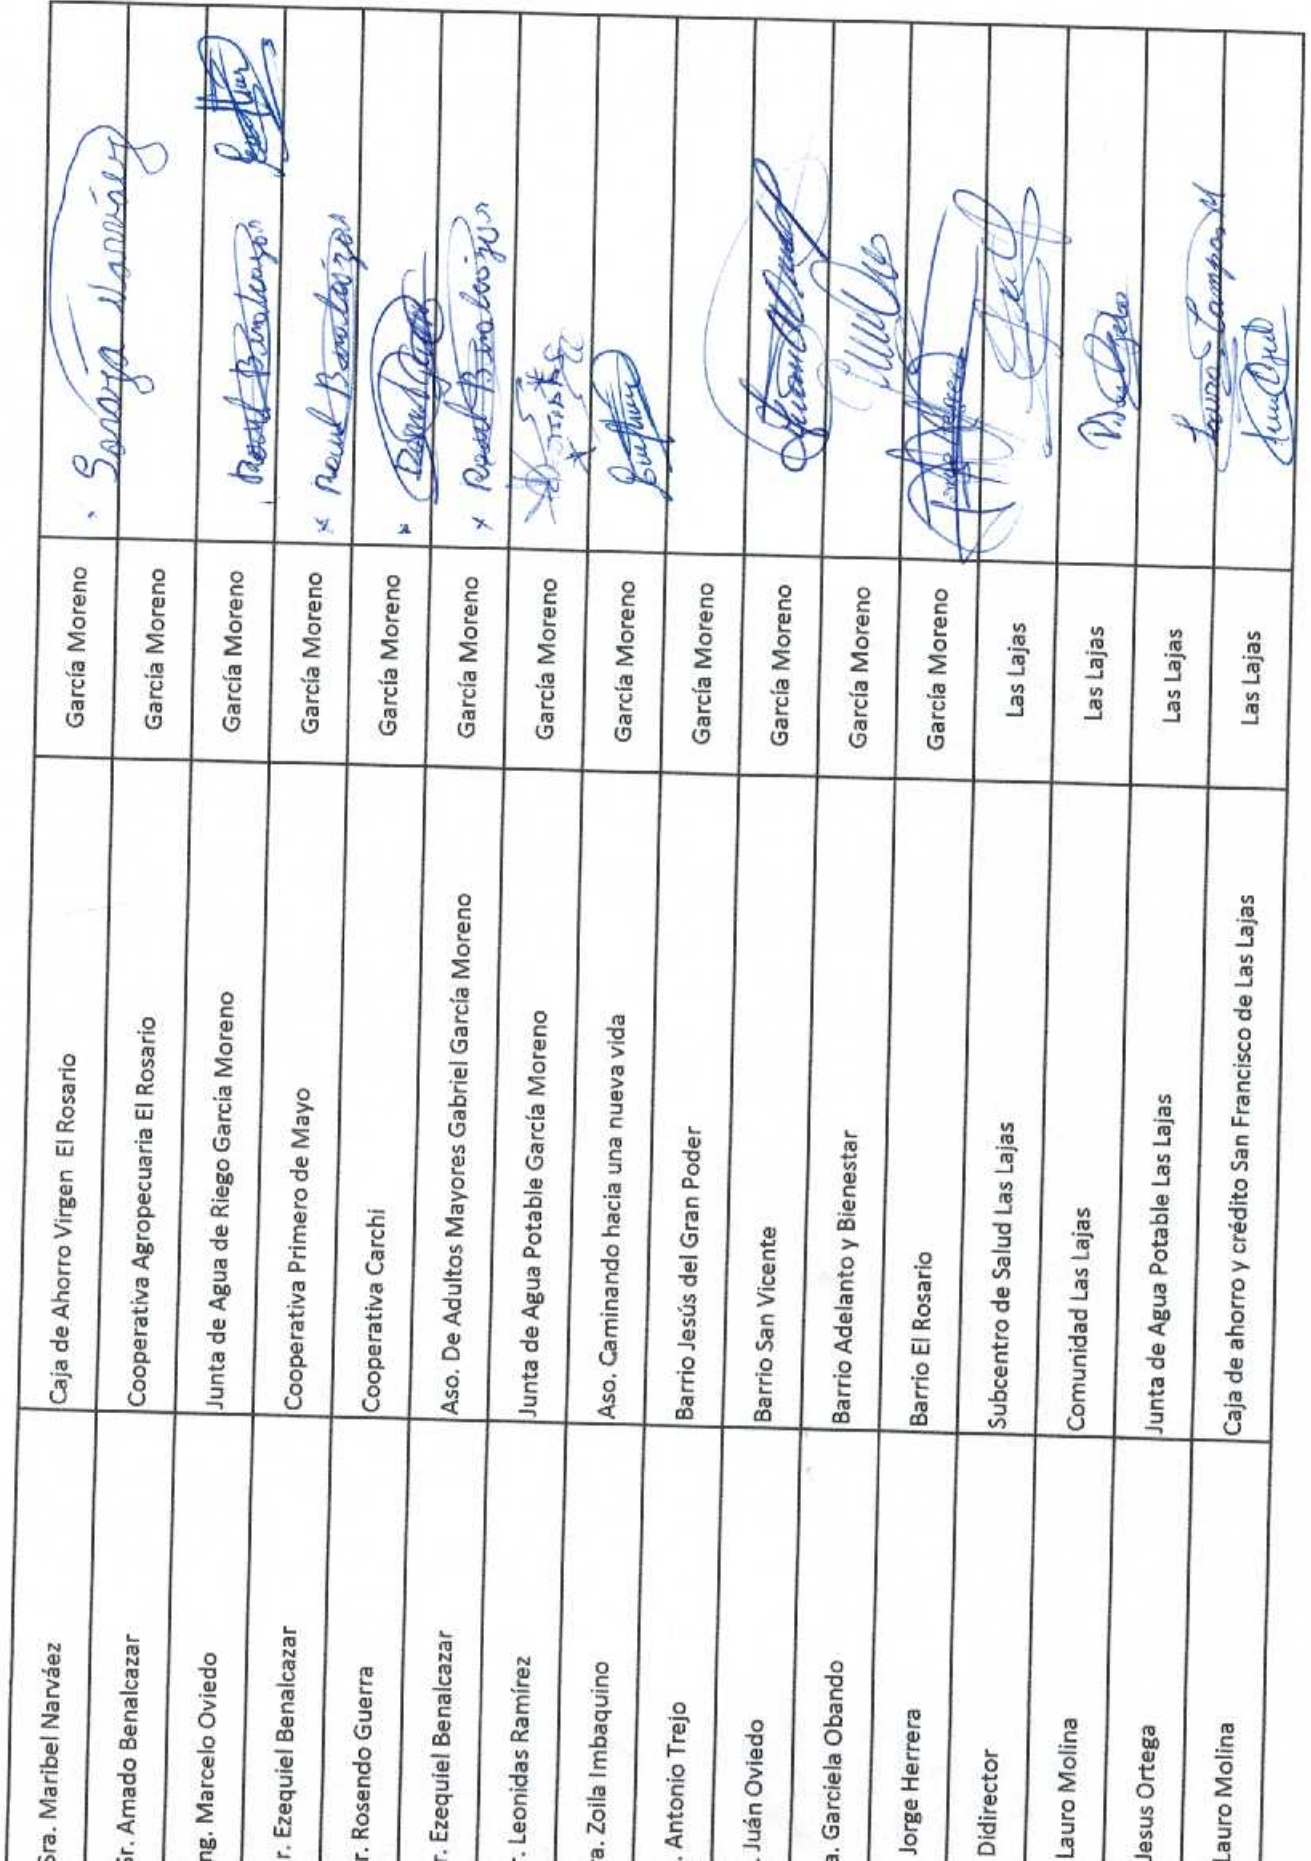 Sra. Maribel Narváez Caja de Ahorro Virgen El Rosario García Moreno
Sr. Amado Benalcazar Cooperativa Agropecuaria El Rosario García Moreno
ng. Marcelo Oviedo Junta de Agua de Riego García Moreno García Moreno
r. Ezequiel Benalcazar Cooperativa Primero de Mayo García Moreno
r. Rosendo Guerra Cooperativa Carchi García Moreno
r. Ezequiel Benalcazar Aso. De Adultos Mayores Gabriel García Moreno García Moreno
r. Leonidas Ramírez Junta de Agua Potable García Moreno García Moreno
ra. Zoila Imbaquino Aso. Caminando hacia una nueva vida García Moreno
. Antonio Trejo Barrio Jesús del Gran Poder García Moreno
. Juán Oviedo Barrio San Vicente García Moreno
a. Garciela Obando Barrio Adelanto y Bienestar García Moreno
Jorge Herrera Barrio El Rosario García Moreno
Didirector Subcentro de Salud Las Lajas Las Lajas
Lauro Molina Comunidad Las Lajas Las Lajas
Jesus Ortega Junta de Agua Potable Las Lajas Las Lajas
Lauro Molina Caja de ahorro y crédito San Francisco de Las Lajas Las Lajas